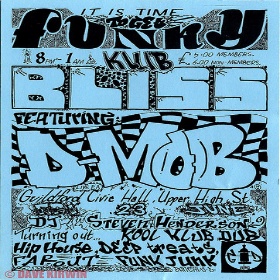 IT IS TIME
TO GET
FUNKY
8 PM - 1 AM
KLUB
£5.00 MEMBERS.
£6.00 NON MEMBERS.
BLISS
FEATURING:
D-MOB
Guildford Civic Hall, Upper High St.
23
DJ
STEVE HENDERSON
Turning out...
KLUB DUB
Hip House DEEP
FAR OUT FUNK JUNK
© DAVE KIRWIN